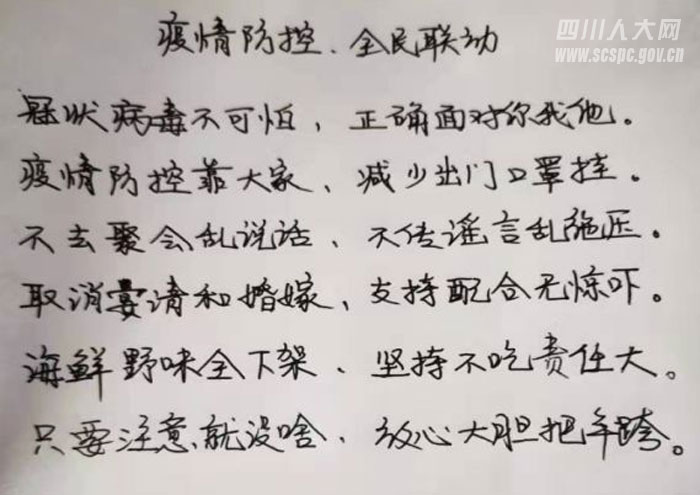 四川人大网
www.scspc.gov.cn
疫情防控、全民联动
冠状病毒不可怕，正确面对你我他。
疫情防控靠大家、减少出门口罩挂。
不去聚会乱说话、不传谣言乱施压。
取消宴请和婚嫁、支持配合无惊吓。
海鲜野味全下架、坚持不吃责任大。
只要注意就没啥、放心大胆把年跨。